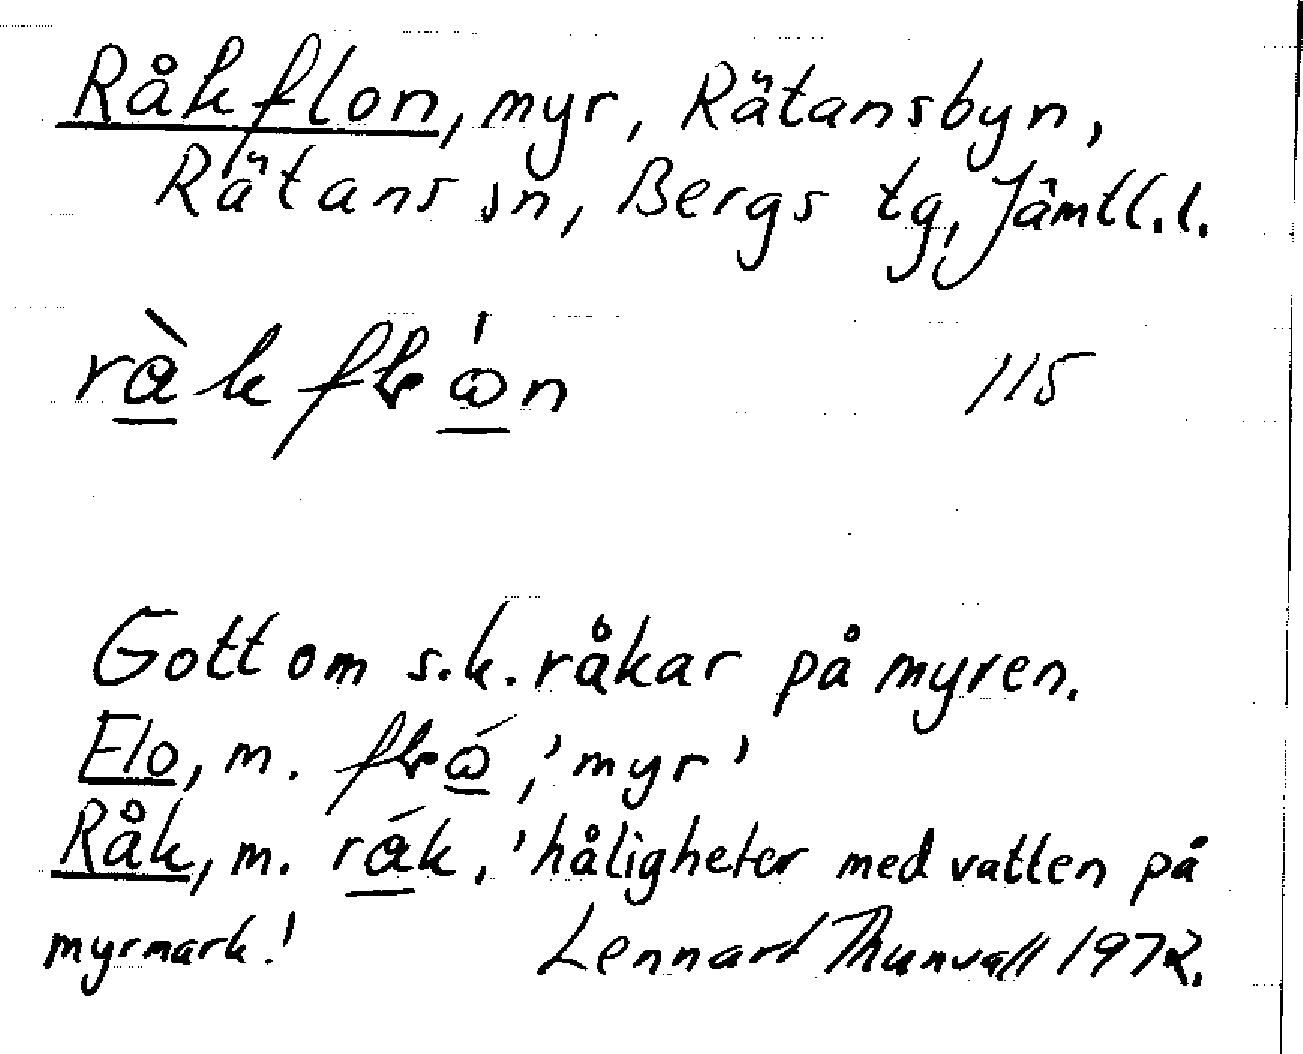 Råkflon, myr, Rätansbyn,
Rätans sn, Bergs tg, Jämtl.l.
råk flon 115
Gott om s.k. råkar på myren.
Flo, m. , 'myr'
Råk, m. råk, 'håligheter med vatten på
myrmark.' Lennart Thunvall 1972.